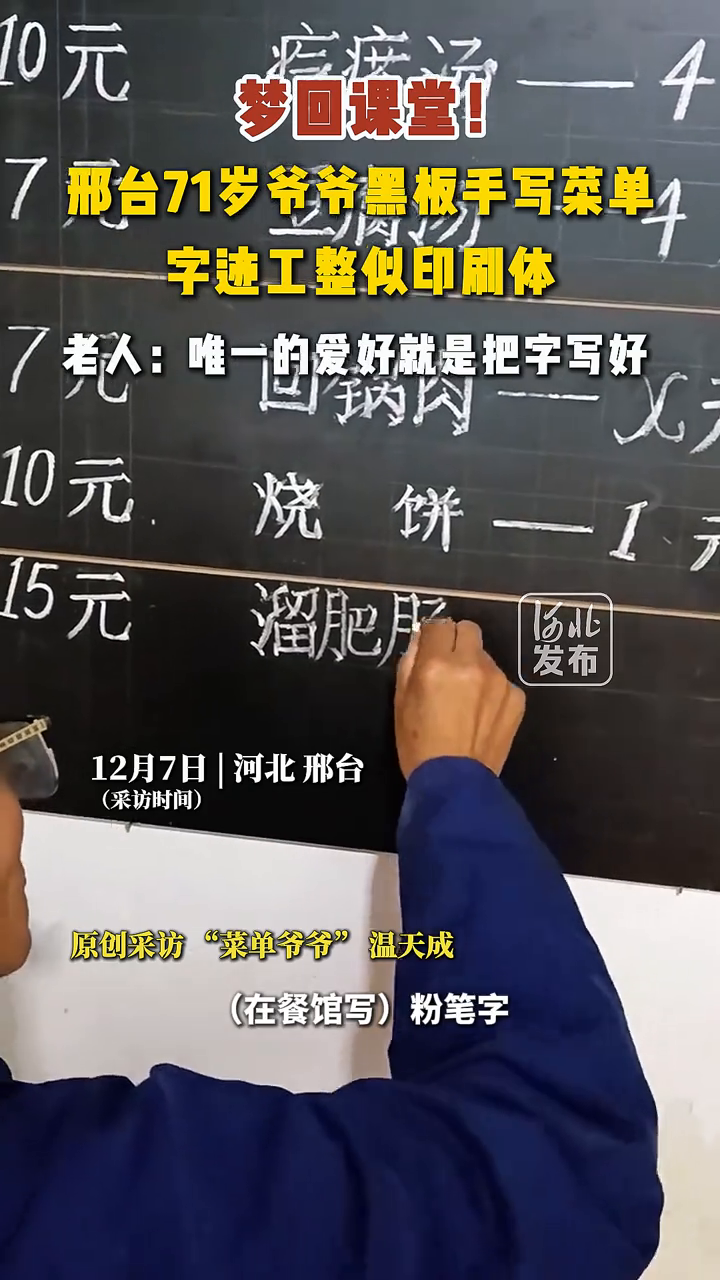 10元 疙瘩汤 — 4
梦回课堂！
邢台71岁爷爷黑板手写菜单
7元 豆腐汤 — 4
字迹工整似印刷体
老人：唯一的爱好就是把字写好
7元 回锅肉 — X元
10元 烧 饼 — 1元
15元 溜肥肠
河北
发布
12月7日 | 河北 邢台
（采访时间）
原创采访 “菜单爷爷” 温天成
（在餐馆写）粉笔字